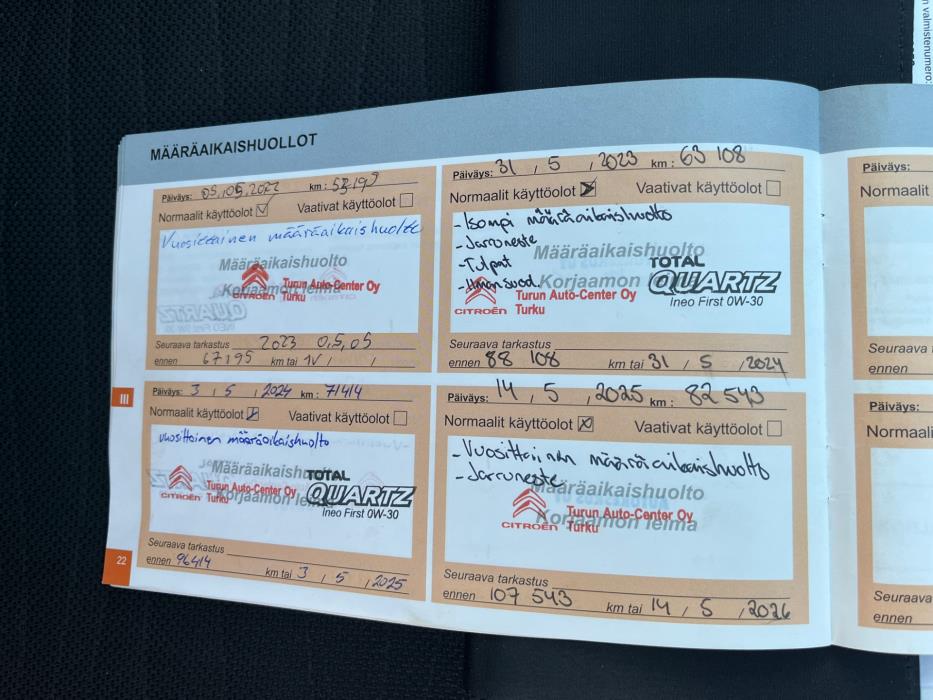 n valmistenumero:
MÄÄRÄAIKAISHUOLLOT
Päiväys: 05,05,2022 km: 53195
Normaalit käyttöolot Vaativat käyttöolot
Vuosittainen määräaikaishuolto
Määräaikaishuolto
Korjaamon leima
CITROËN
Turun Auto-Center Oy
Turku
Seuraava tarkastus 2023 0,5,05
ennen 67195 km tai 1V / /
Päiväys: 31 , 5 , 2023 km: 63 108
Normaalit käyttöolot Vaativat käyttöolot
- Isompi määräaikaishuolto
- Jarruneste
- Tulpat
- Ilman suod.
Määräaikaishuolto
Korjaamon leima
CITROËN
Turun Auto-Center Oy
Turku
TOTAL
QUARTZ
Ineo First 0W-30
Seuraava tarkastus
ennen 88 108 km tai 31 / 5 , 2024
III
Päiväys: 3 , 5 , 2024 km: 71414
Normaalit käyttöolot Vaativat käyttöolot
vuosittainen määräaikaishuolto
Määräaikaishuolto
Korjaamon leima
CITROËN
Turun Auto-Center Oy
Turku
TOTAL
QUARTZ
Ineo First 0W-30
Seuraava tarkastus
ennen 96414 km tai 3 , 5 , 2025
Päiväys: 14 , 5 , 2025 km: 82 543
Normaalit käyttöolot Vaativat käyttöolot
- Vuosittainen määräaikaishuolto
- Jarruneste
Määräaikaishuolto
Korjaamon leima
CITROËN
Turun Auto-Center Oy
Turku
Seuraava tarkastus
ennen 107 543 km tai 14 / 5 , 2026
22
Päiväys:
Normaalit
Seuraava
ennen
Päiväys:
Normaali
Seuraava
ennen